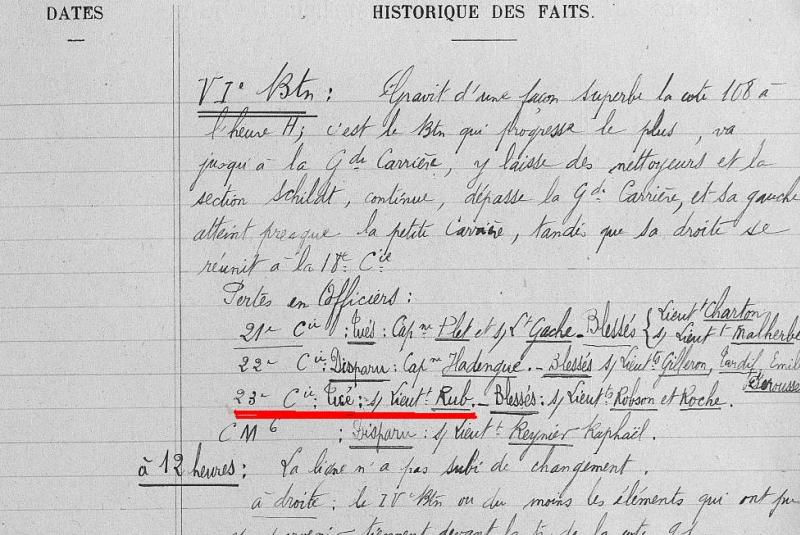 DATES
HISTORIQUE DES FAITS.
VIe Btn : Gravit d'une façon superbe la cote 108 à
l'heure H; c'est le Btn qui progresse le plus, va
jusqu'à la Gde Carrière, y laisse des nettoyeurs et la
section Schildt, continue, dépasse la Gde Carrière, et sa gauche
atteint presque la petite Carrière, tandis que sa droite se
réunit à la 18e Cie
Pertes en Officiers :
21e Cie : Tués : Capne Plet et s/ Lt Gache - Blessés { Lieutt Charton
s/ Lieutt Malherbe
22e Cie : Disparu : Capne Hadengue. - Blessés s/ Lieutts Gilleron, Tardif, Emile
23e Cie : Tué : s/ Lieutt Rub. - Blessés : s/ Lieutts Robson et Roche.
CM6 : Disparu : s/ Lieutt Reynier Raphaël.
à 12 heures : La ligne n'a pas subi de changement.
à droite : le IVe Btn ou du moins les éléments qui ont pu
tiennent devant la de la cote 91